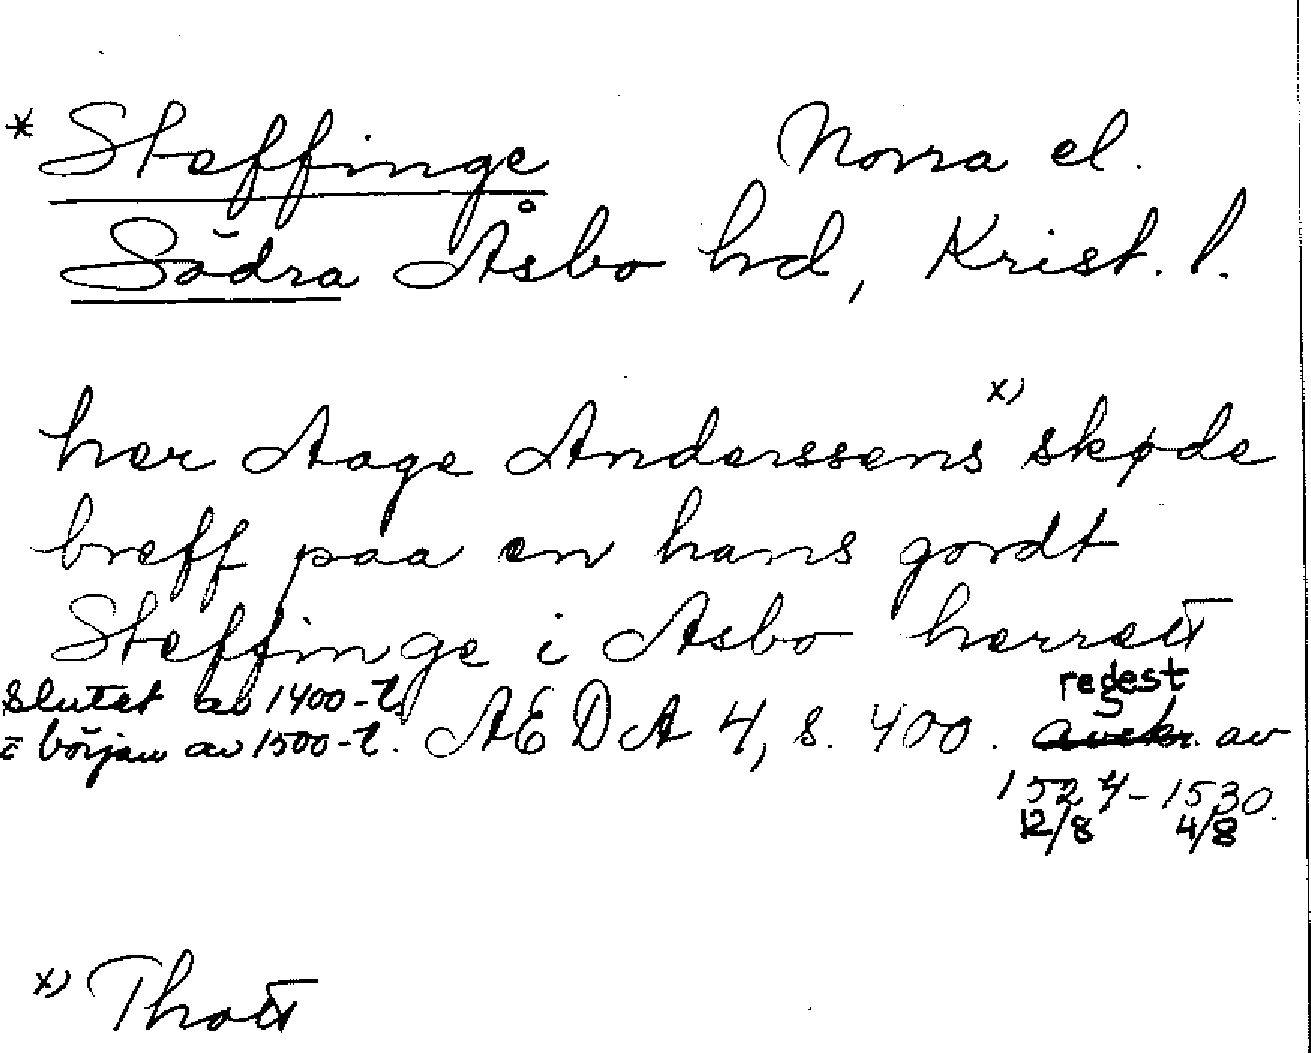 * Steffinge Norra el.
Södra Åsbo hd, Krist. l.
her Aage Anderssens x) skøde
breff paa en hans gordt
Steffinge i Asbo herrett
slutet av 1400-t. regest
i början av 1500-t. AEDA 4, s. 400. avskr. av
1524-1530.
12/8 4/8
x) Thott